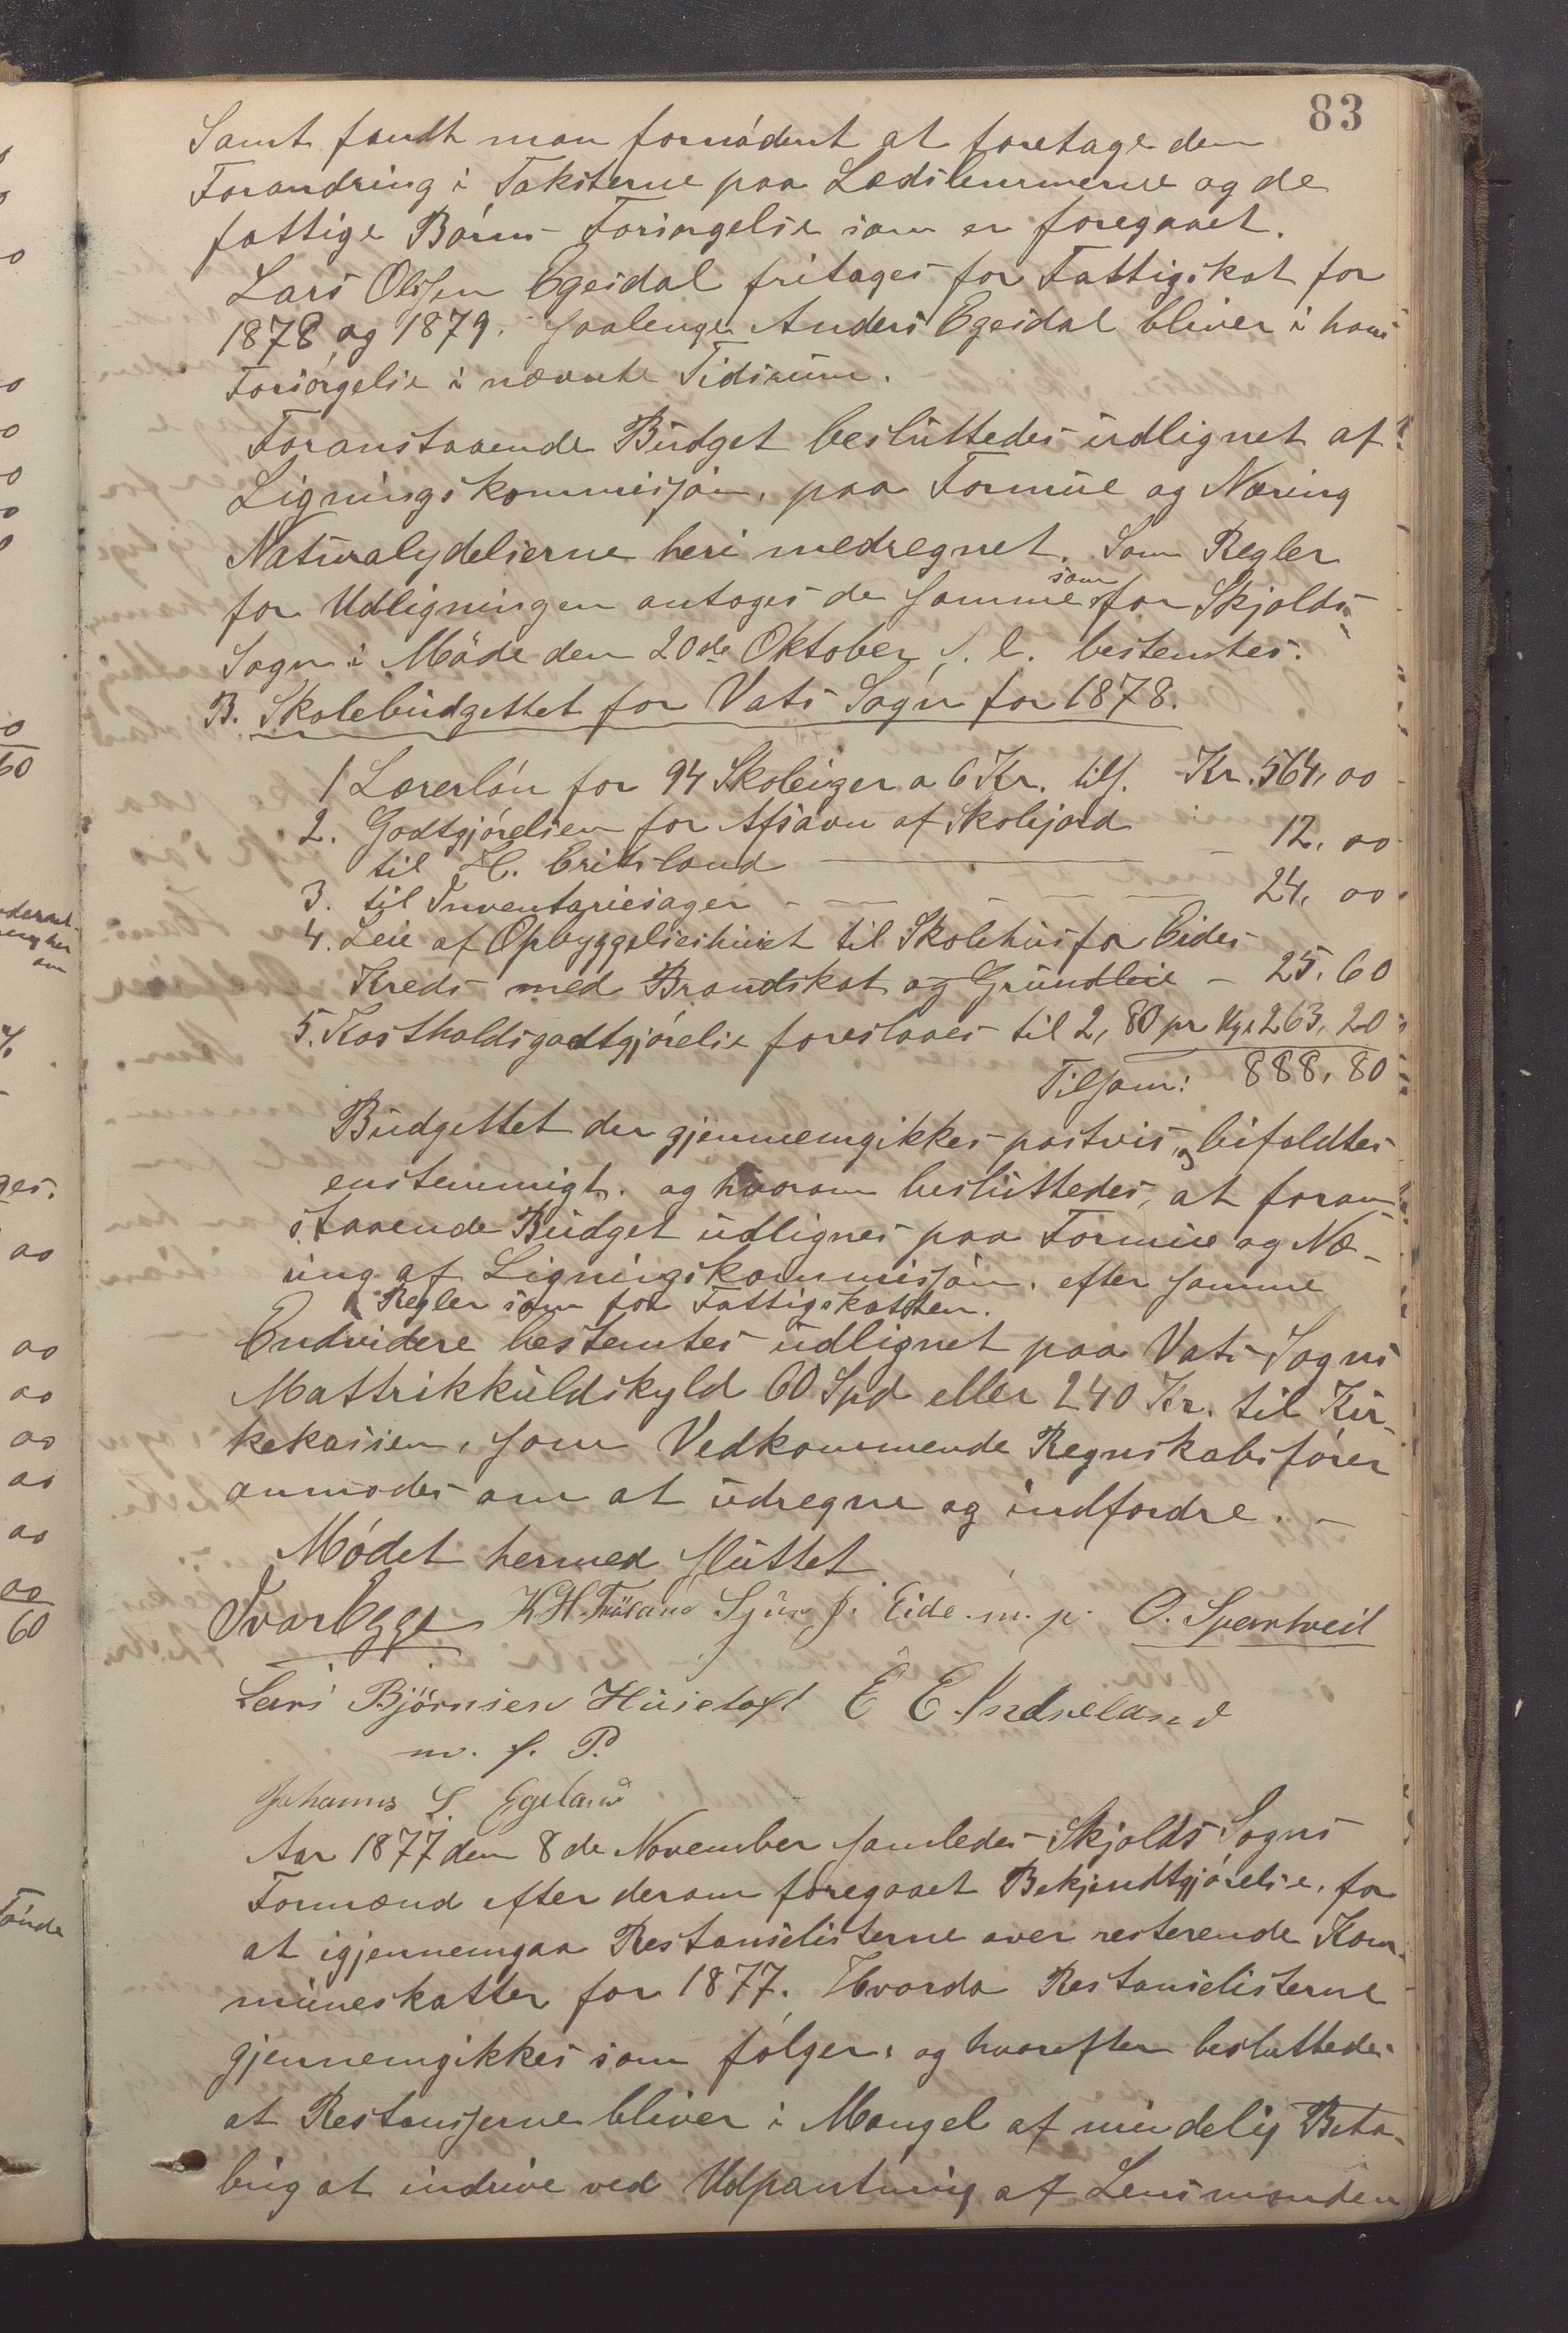 83
Samt fandt man fornødent at foretage den
Forandring i Taksterne paa Lædslemmerne og de
fattige Børns Forsørgelse som er foregaaet.
Lars Olsen Egesdal fritages for Fattigskat for
1878 og 1879. saalenge Anders Egesdal bliver i hans
Forsørgelse i nævnte Tidsrum.
Foranstaaende Budget besluttedes udlignet af
Ligningskommisjon, paa Formue og Næring
Naturalydelserne heri medregnet. Som Regler
for Udligningen antoges de samme som for Skjolds
Sogn i Møde den 20de Oktober s. l. bestemtes.
B. Skolebudgettet for Vats Sogn for 1878.
1 Lærerløn for 94 Skoleuger a 6 Kr. tils. Kr. 564,00
2. Godtgjørelsen for Afsavn af Skolejord
til H. Eriksland — 12,00
3. til Inventariesager - — - — 24,00
4. Leie af Opbyggelseshuset til Skolehus for Eides
Kreds med Brandskat og Grundleie - 25,60
5. Kostholdsgodtgjørelse foreslaaes til 2,80 pr Uge 263,20
Tilsam: 888,80
Budgettet der gjennemgikkes postvis, og bifaldtes
enstemmigt. og hvorom besluttedes, at foran-
staaende Budget udlignes paa Formue og Næ-
ring af Ligningskommisjon, efter samme
Regler som for Fattigskatten.
Endvidere bestemtes udlignet paa Vats Sogns
Mattrikkulskyld 60 Spd eller 240 Kr. til Kir-
kekassen, som Vedkommende Regnskabsfører
anmodes om at udregne og indfordre. -
Mødet hermed sluttet
Ivar Egge K H. Frøland Sjur J. Eide. m. p. O. Spærtveit
Lars Björnsen Husetoft E E Indreland
m. f. P.
Johannes L. Egeland
Aar 1877 den 8de November samledes Skjolds Sogns
Formænd efter derom foregaaet Bekjendtgjørelse, for
at igjennemgaa Restanselisterne over resterende Kom-
muneskatter for 1877. Hvorda Restanselisterne
gjennemgikkes som følger, og hvorefter besluttedes
at Restanserne bliver i Mangel af mindelig Beta-
ling at indrive ved Udpantning af Lensmanden